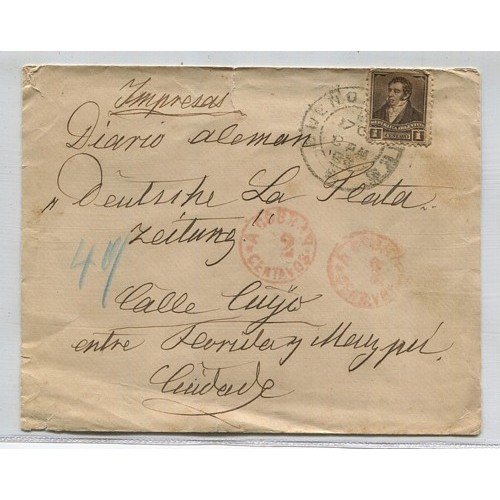 Impresas
Diario aleman
„Deutsche La Plata
Zeitung"
Calle Cuyo
entre Florida y Maypú.
Ciudade
BUENOS
17
REPUBLICA ARGENTINA
1 CENTAVO 1
A COBRAR
2
CENTAVOS
A COBRAR
2
CENTAVOS